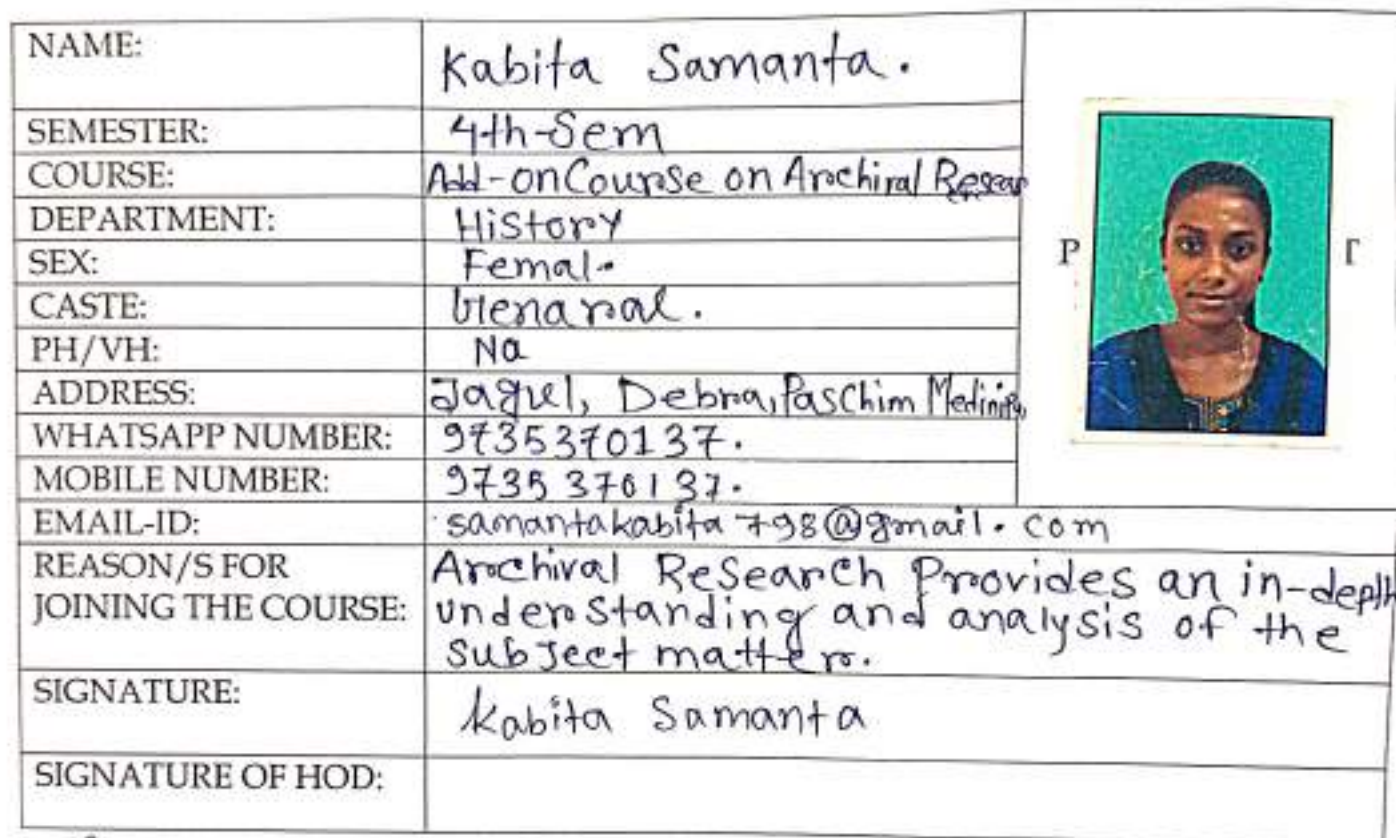 NAME: Kabita Samanta.
SEMESTER: 4th-Sem
COURSE: Add-on Course on Archival Resear
DEPARTMENT: History
SEX: Femal.
CASTE: Genaral.
PH/VH: Na
ADDRESS: Jaguel, Debra, Paschim Medinipu
WHATSAPP NUMBER: 9735370137.
MOBILE NUMBER: 9735370137.
EMAIL-ID: samantakabita798@gmail.com
REASON/S FOR Archival Research Provides an in-depth
JOINING THE COURSE: understanding and analysis of the
subject matter.
SIGNATURE: Kabita Samanta
SIGNATURE OF HOD:
P T